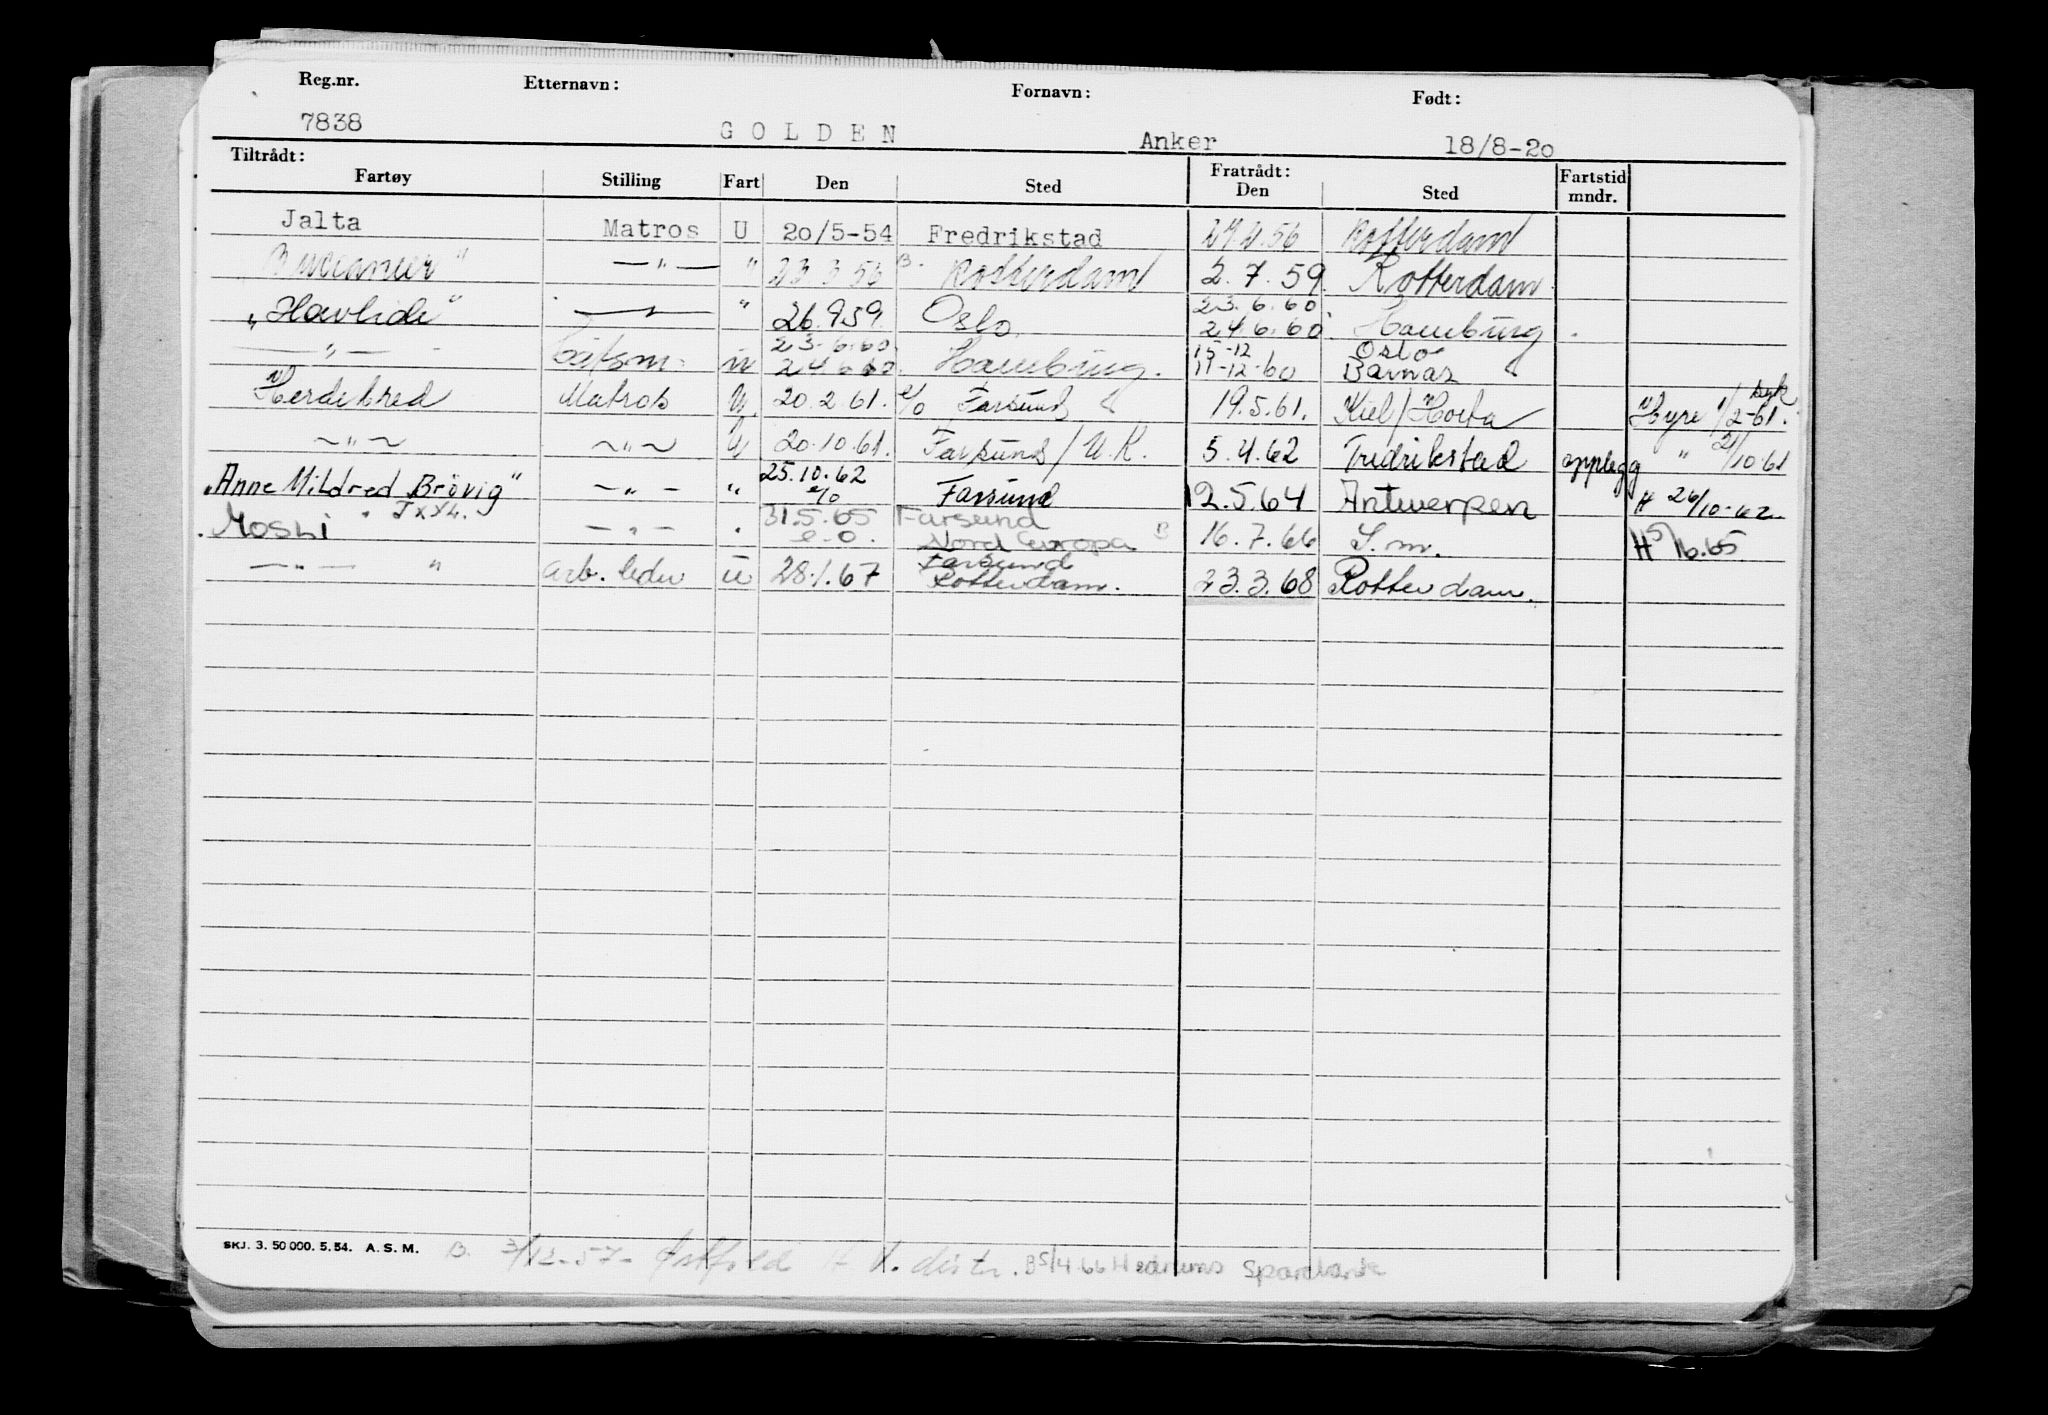 Reg.nr. Etternavn: Fornavn: Født:
7838 GOLDEN Anker 18/8-20
Tiltrådt: Fratrådt:
Fartøy Stilling Fart Den Sted Den Sted Fartstid mndr.
Jalta Matros U 20/5-54 Fredrikstad 56 Rotterdam
Buccaneer" —"— " 23 3 56 B. Rotterdam 2.7.59. Rotterdam
"Havlide" " 26.9 59. Oslo 23.6.60 24.6.60 Hamburg
—"— båtsm. u 23.6.60. 24 6 60 Hamburg. 15-12 11-12-60 Oslo Barnas
"Herdebred Matros U. 20.2.61. e/o Farsund 19.5.61. Kiel/Horta "Hyre 1/2-61. syk
~"~ ~"~ U 20.10.61. Farsund/U.K. 5.4.62 Fredrikstad opplegg " 21/10-61
"Anne Mildred Brøvig" —"— " 25.10.62 e/o Farsund 12.5.64 Antwerpen H 26/10-62
Moshi —"— " 31.5.65 e-o. Farsund Nord Europa B 16.7.66 S.m. H 5/6.65
—"— " arb. leder u 28.1.67 Farsund Rotterdam. 23.3.68 Rotterdam.
SKJ. 3. 50 000. 5. 54. A.S.M. B. 3/12-57- Østfold H.K. distr. B 5/4 66 Hedrums Sparebank